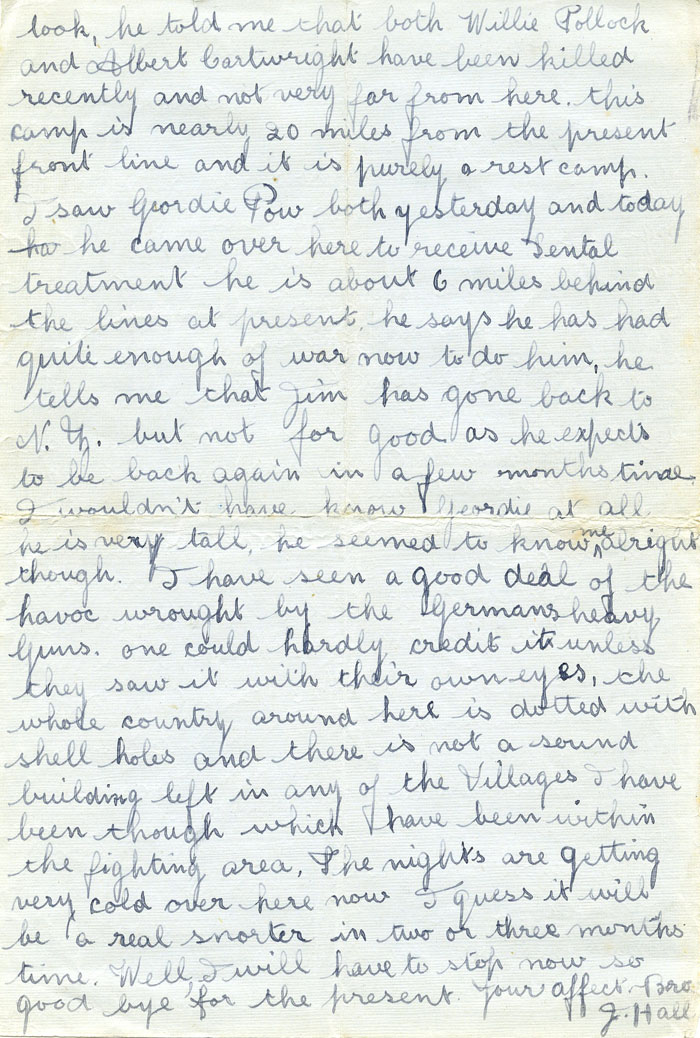 look, he told me that both Willie Pollock
and Albert Cartwright have been killed
recently and not very far from here. this
camp is nearly 20 miles from the present
front line and it is purely a rest camp.
I saw Geordie Pow both yesterday and today
ha he came over here to receive Dental
treatment he is about 6 miles behind
the lines at present, he says he has had
quite enough of war now to do him, he
tells me that Jim has gone back to
N. Z. but not for good as he expects
to be back again in a few months time
I wouldn't have know Geordie at all
he is very tall, he seemed to know me alright
though. I have seen a good deal of the
havoc wrought by the Germans heavy
Guns. one could hardly credit it unless
they saw it with their own eyes, the
whole country around here is dotted with
shell holes and there is not a sound
building left in any of the Villages I have
been though which have been within
the fighting area, The nights are getting
very cold over here now I guess it will
be a real snorter in two or three months
time. Well, I will have to stop now so
good bye for the present. Your affect. Bro
J. Hall